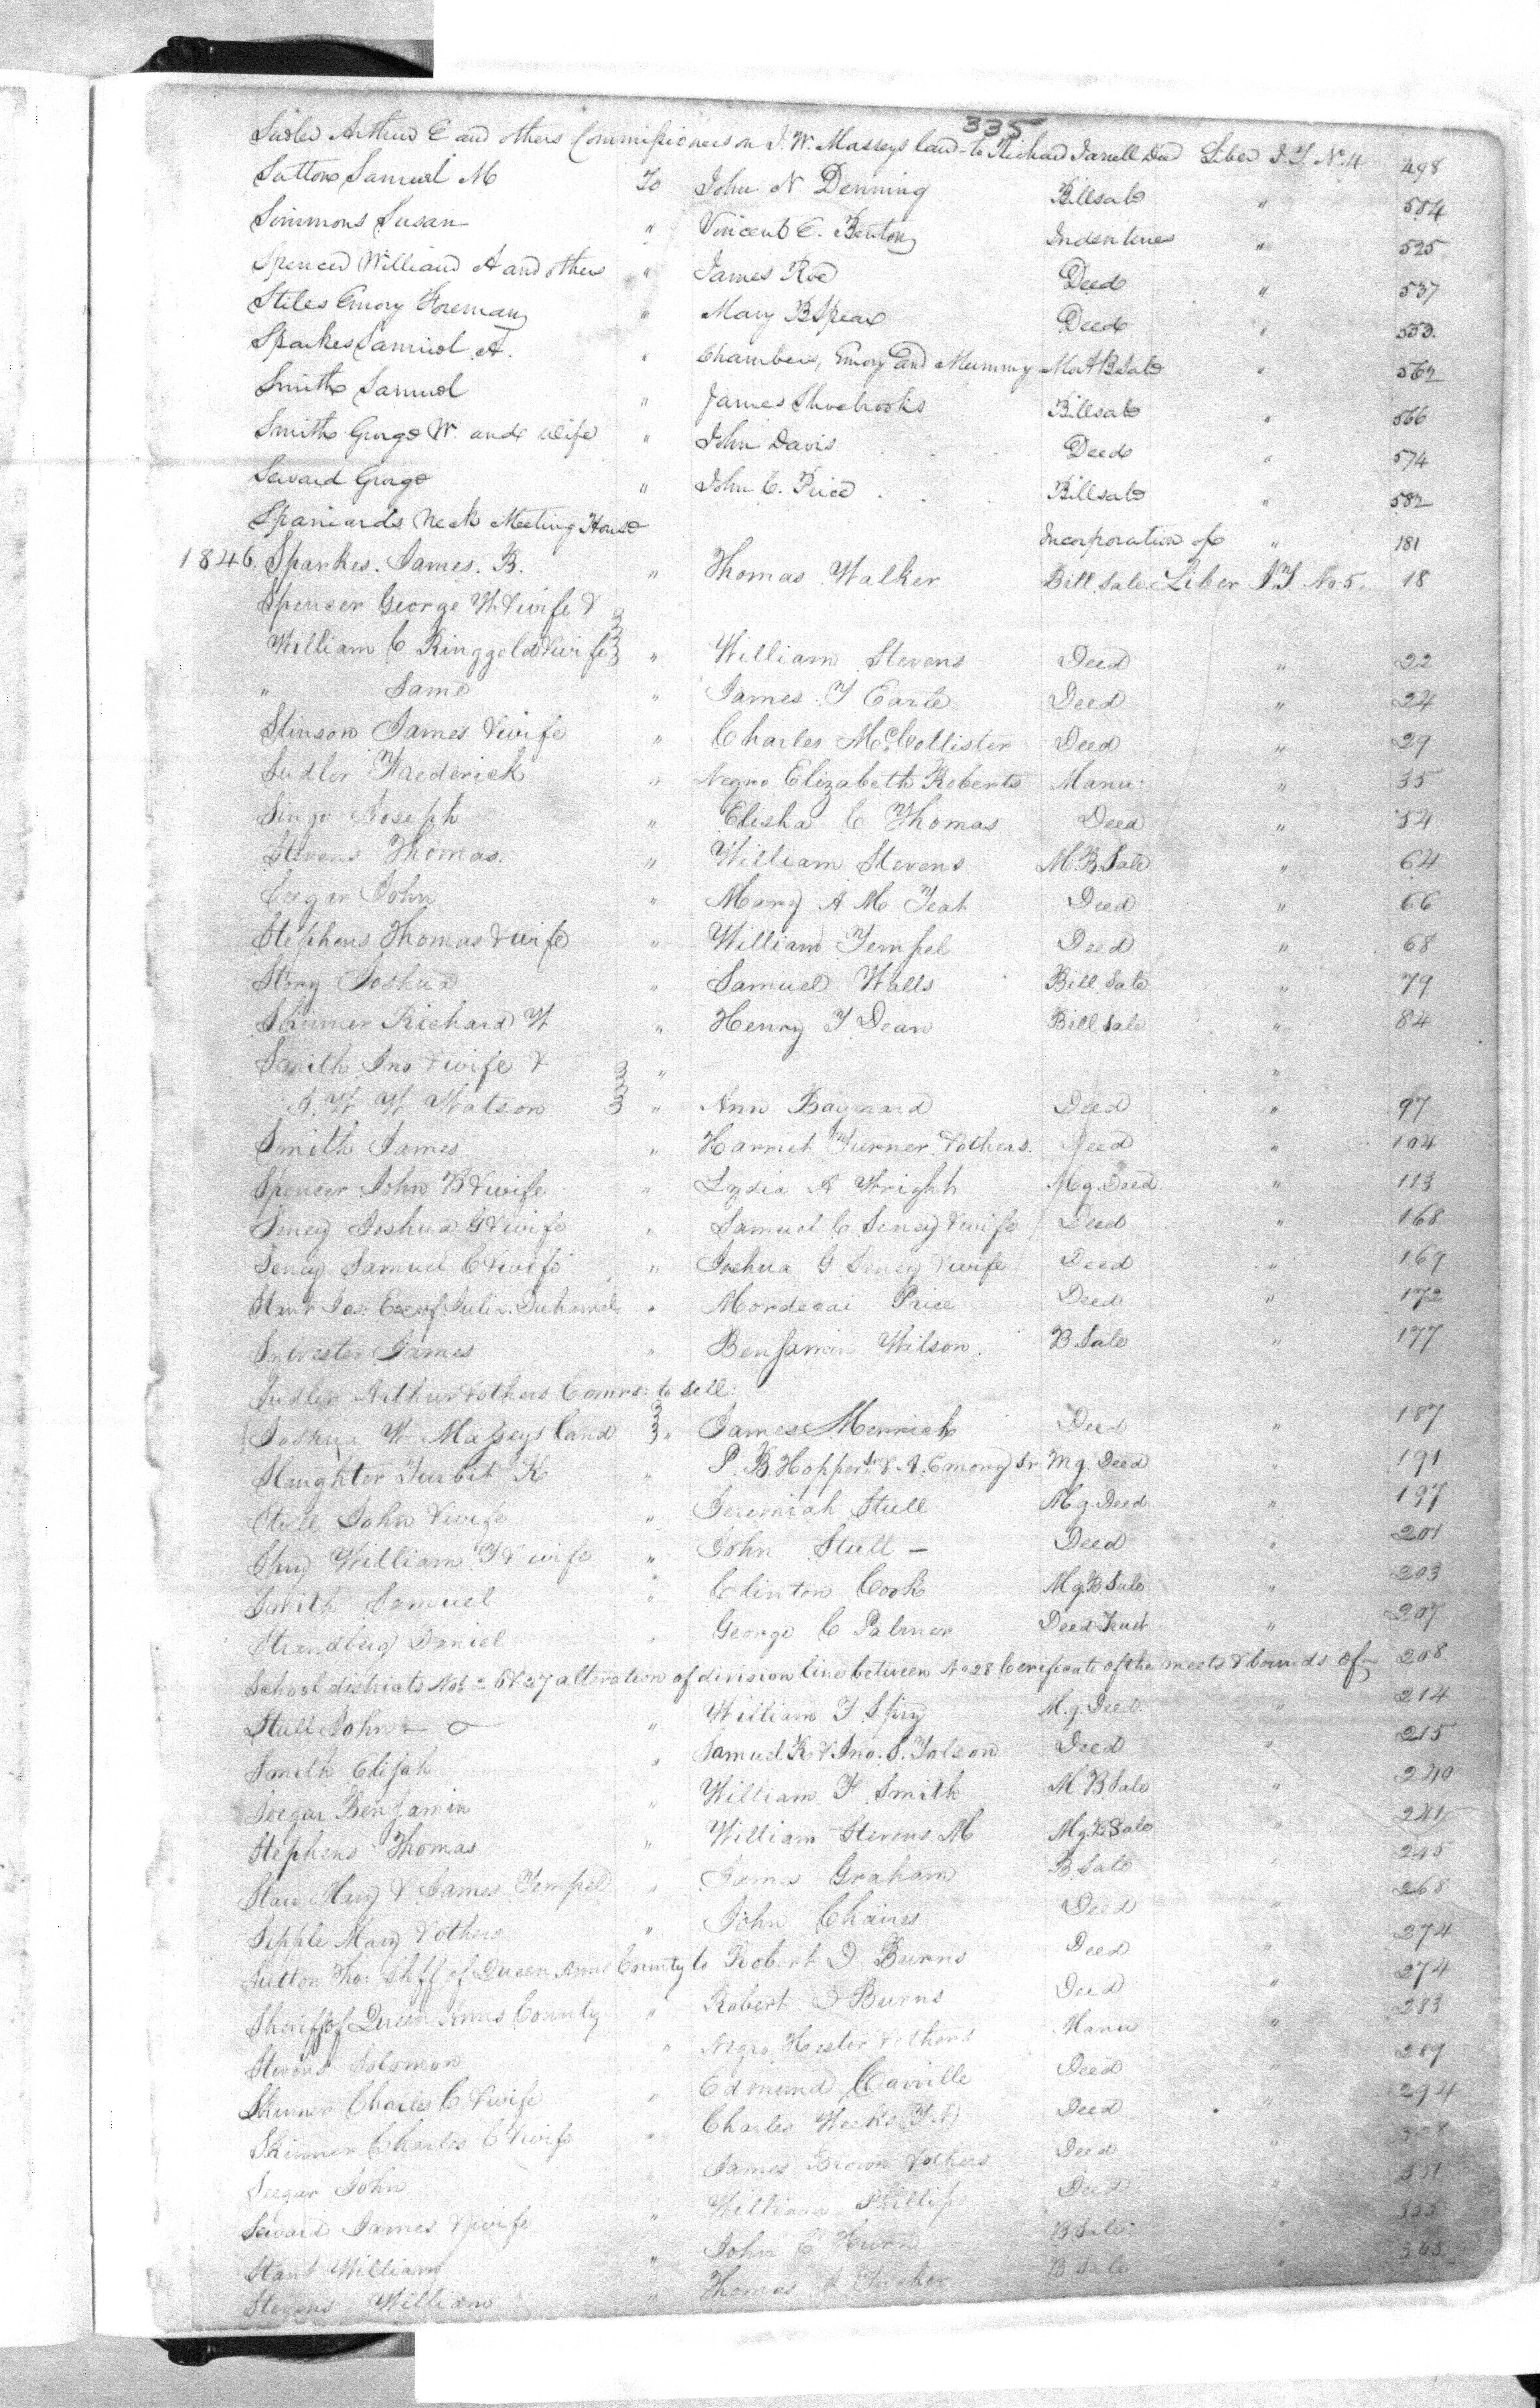 335
Sudler Arthur E and others Commissioners on J. W. Masseys land to Richard Jarrell Deed Liber J.T. No. 4 498
Sutton Samuel M To John N Denning Billsale " 504
Simmons Susan " Vincent E. Benton Indentures " 525
Spencer William A and others " James Roe Deed " 537
Stiles Emory Foreman " Mary B Spear Deed " 553.
Sparkes Samuel A. " Chambers, Emory and Mummy " 562
Smith Samuel " James Shoebrooks Billsale " 566
Smith George W. and wife " John Davis Deed " 574
Seward George " John C. Price Billsale " 582
Spaniards Neck Meeting House Incorporation of " 181
1846. Sparkes. James. B. " Thomas Walker Bill Sale. Liber JT No. 5. 18
Spencer George W & wife &
William C Ringgold & wife " William Stevens Deed " 22
" Same " James T Earle Deed " 24
Stinson James & wife " Charles McCollister Deed " 29
Sudler Frederick " Negro Elizabeth Roberts Manu " 35
Singo Joseph " Elisha C Thomas Deed " 54
Stevens Thomas. " William Stevens M. B. Sale " 64
Seegar John " Mary A M Yeat Deed " 66
Stephens Thomas & wife " William Tempel Deed " 68
Story Joshua " Samuel Walls Bill Sale " 79
Skinner Richard W " Henry T Dean Bill Sale " 84
Smith Jno & wife & " "
J. W. W. Watson " Ann Baynard Deed " 97
Smith James " Harriet Turner & others. Deed " 104
Spencer John B & wife " Lydia A Wright Mg. Deed " 113
Seney Joshua G & wife " Samuel C Seney & wife Deed " 168
Seney Samuel C & wife " Joshua G Seney & wife Deed " 169
Stant Jas: Exr of Julia Duhamel " Mordecai Price Deed " 172
Sylvester James " Benjamin Wilson. B Sale " 177
Sudler Arthur & others Comrs: to sell:
Joshua W Masseys land " James Merrick Deed " 187
Slaughter Turbit K " P. B. Hopper Sr & A. Emory Sr Mg. Deed " 191
Stull John & wife " Jeremiah Stull Mg. Deed " 197
Spry William T & wife " John Stull — Deed " 201
Smith Samuel " Clinton Cook Mg. B Sale " 203
Strandberg Daniel " George C Palmer Deed Trust " 207
School districts Nos 6 & 27 alteration of division line between No 28 Cerificate of the meets & bounds of 208
Stull John " William T Spry M.g. Deed " 214
Smith Elijah " Samuel K & Jno. S. Tolson Deed " 215
Seegar Benjamin " William F Smith M B Sale " 240
Stephens Thomas " William Stevens M Mg. B Sale " 241
Mary & James Tempel " James Graham B Sale " 245
Sipple Mary & others " John Chaires Deed " 268
Sutton Tho: Shff of Queen Anns County to Robert D Burns Deed " 274
Sheriff of Queen Anns County " Robert D Burns Deed " 274
Stevens Solomon " Negro Hester & others Manu " 283
Skinner Charles C & wife " Edmund Carville Deed " 289
Skinner Charles C & wife " Charles Deed " 294
Seegar John " James Brown & others Deed "
Seward James & wife " William Phillips Deed " 351
Stant William " John C B Sale "
Stevens William " Thomas B Sale "